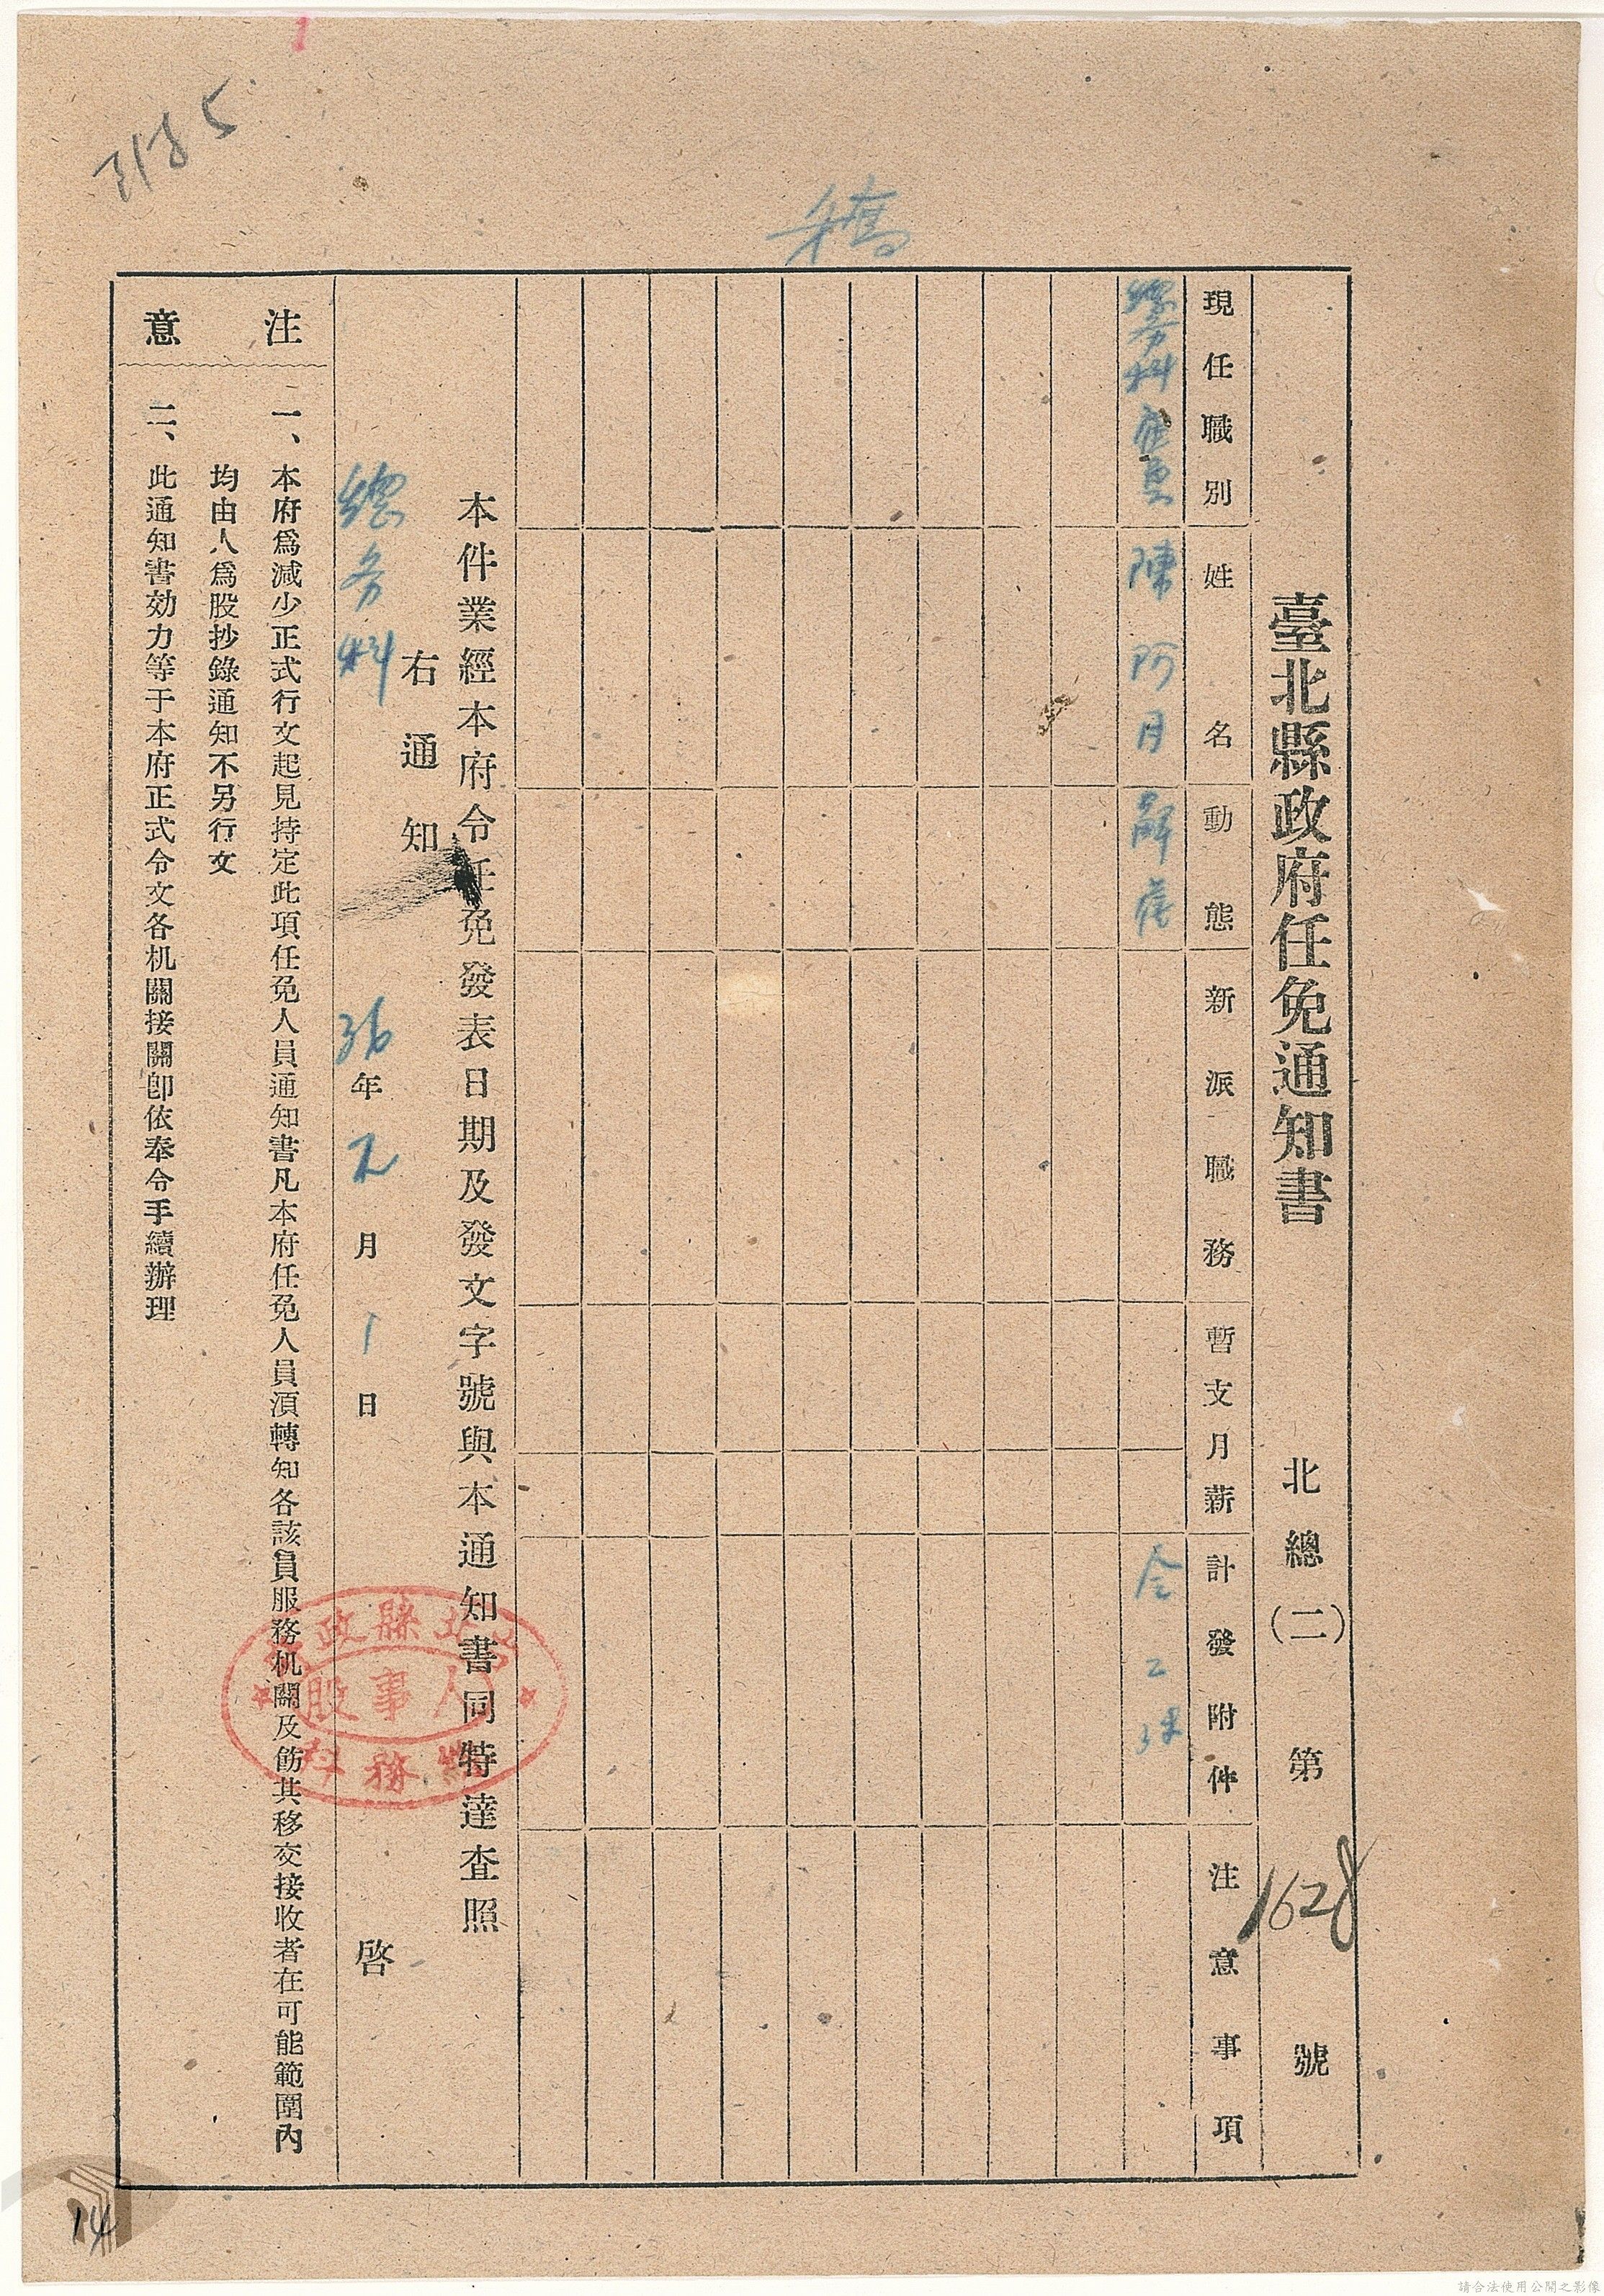 3185
稿
臺北縣政府任免通知書 北總(二)第1628號
現任職別 姓名 動態 新派職務 暫支月薪 計發附件 注意事項
總務科雇員 陳阿月 解雇 令乙件
本件業經本府令任免發表日期及發文字號與本通知書同特達查照
右通知
總務科 36年元月1日 啓
注意
一、本府爲減少正式行文起見持定此項任免人員通知書凡本府任免人員湏轉知各該員服務机關及飭其移交接收者在可能範圍內
均由人爲股抄錄通知不另行文
二、此通知書効力等于本府正式令文各机關接關卽依奉令手續辦理
台北縣政府
人事股
總務科
14
請合法使用公開之影像